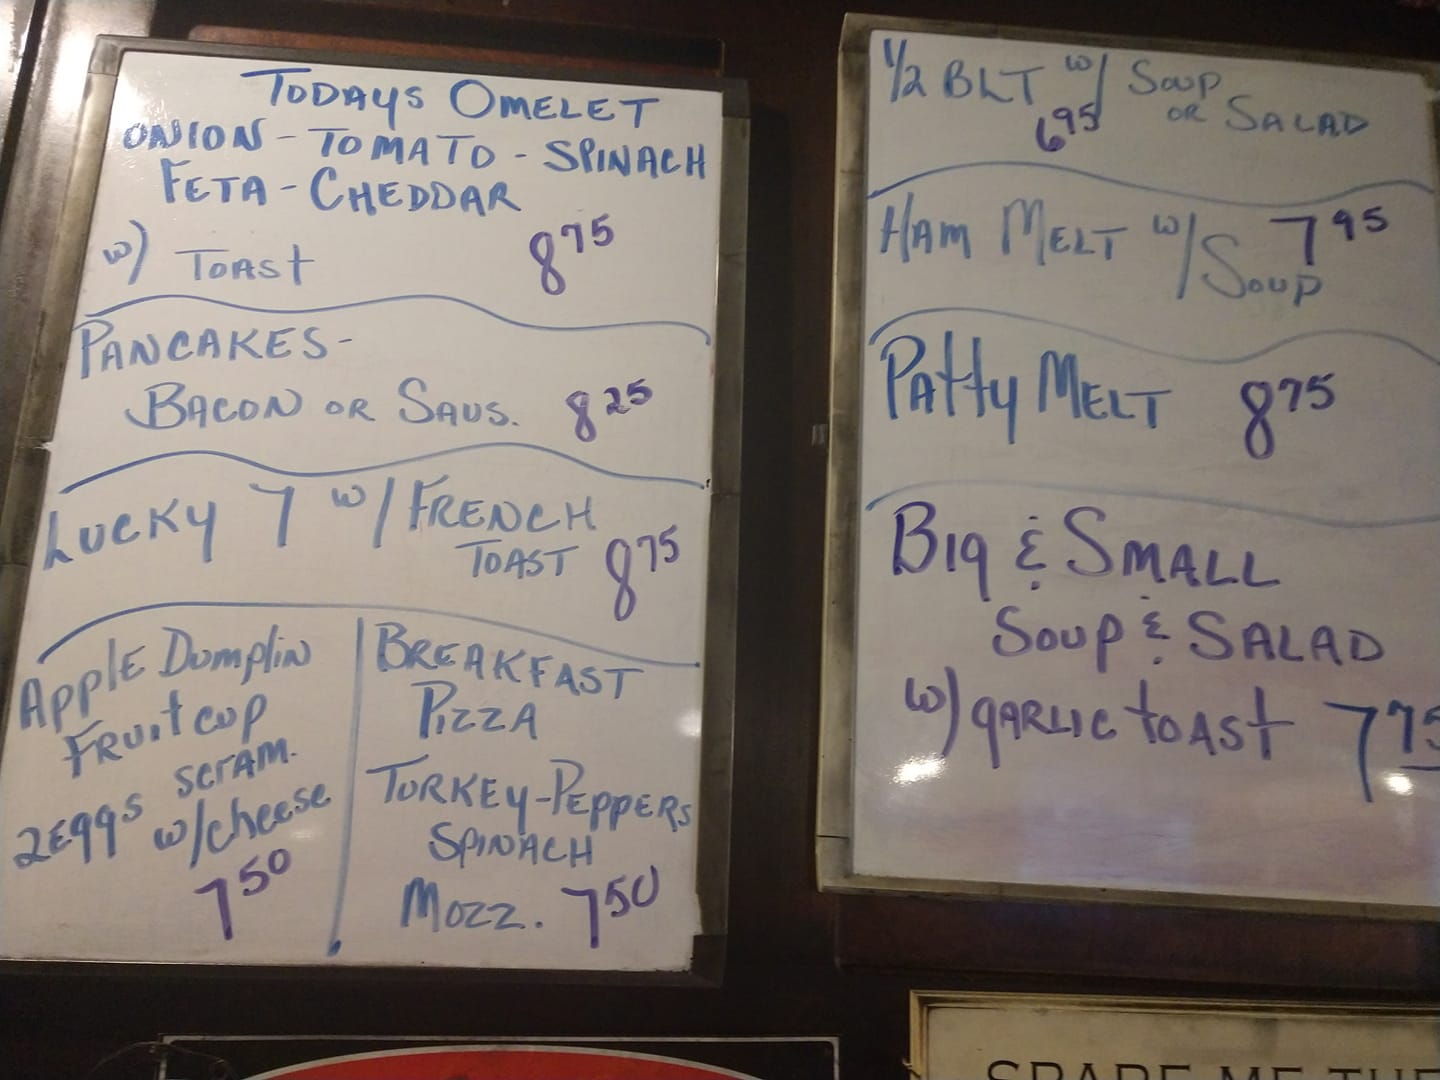 TODAYS OMELET
ONION - TOMATO - SPINACH
FETA - CHEDDAR
w) TOAST 8 75
PANCAKES -
BACON OR SAUS. 8 25
LUCKY 7 w/ FRENCH
TOAST 8 75
APPLE DUMPLIN
FRUIT CUP
SCRAM.
2 EGGS w/cheese
7 50
BREAKFAST
PIZZA
TURKEY-PEPPERS
SPINACH
MOZZ. 7 50
1/2 BLT w/ Soup
6 95 OR SALAD
HAM MELT w/ 7 95
Soup
Patty MELT 8 75
Big & SMALL
Soup & SALAD
w) gARLIC toASt 7 75
SPARE ME THE